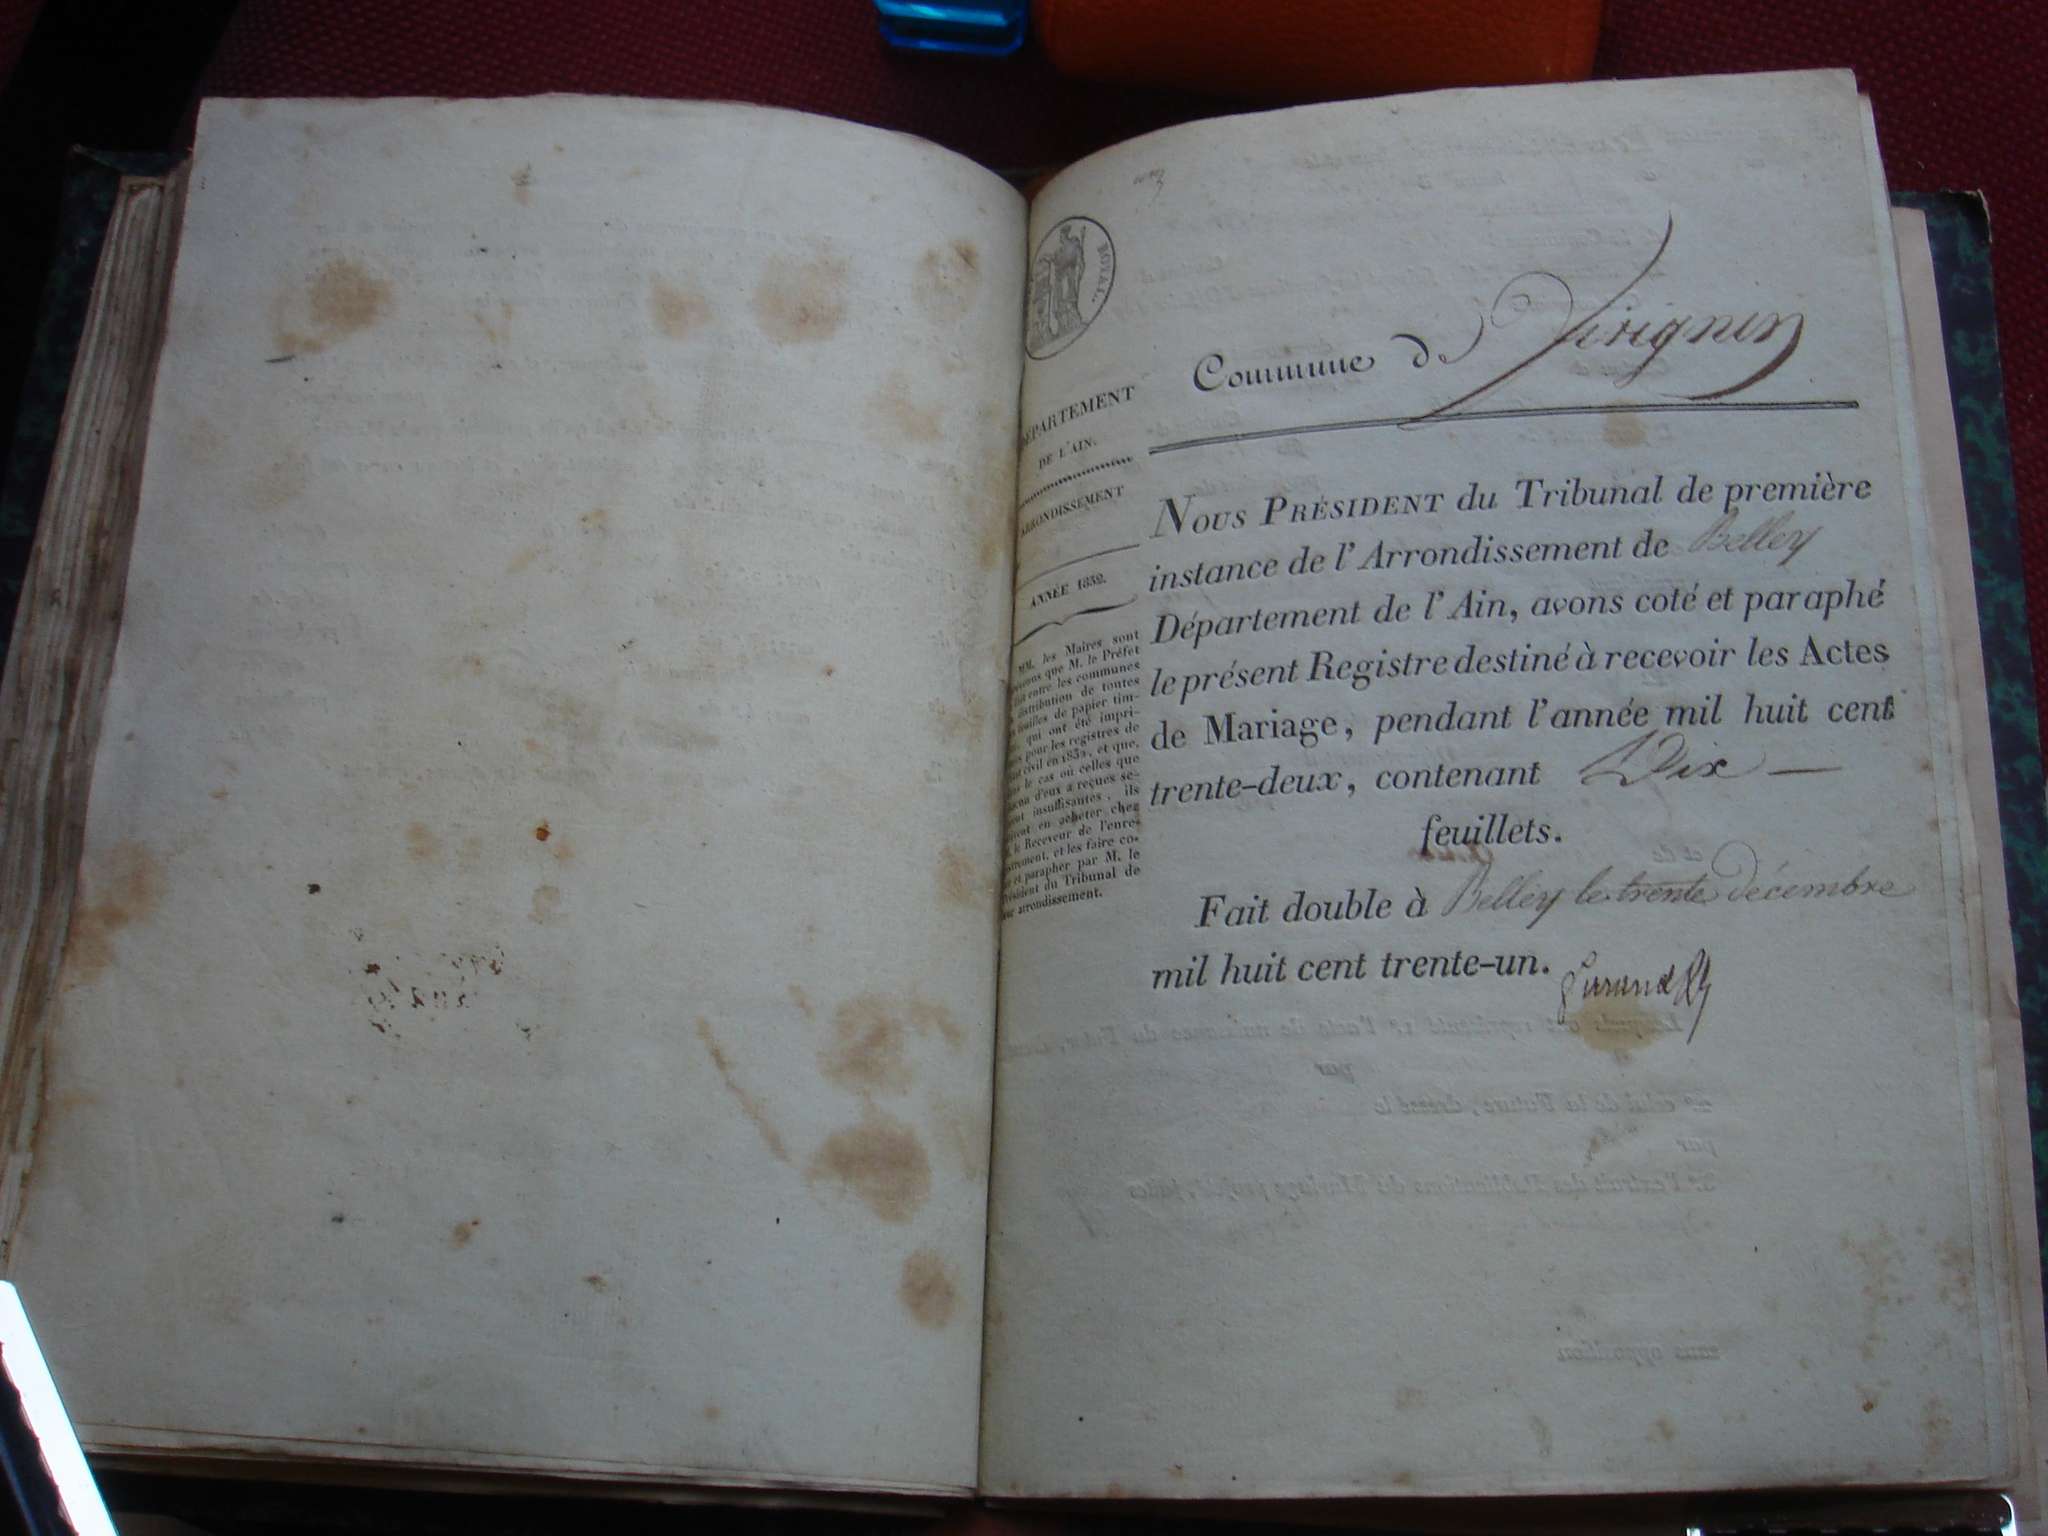 ROYAL.
Commune de Virignin
DÉPARTEMENT
DE L'AIN.
ARRONDISSEMENT
ANNÉE 1832.
MM. les Maires sont
que M. le Préfet
entre les communes
distribution de toutes
feuilles de papier tim-
qui ont été impri-
pour les registres de
civil en 1832, et que,
le cas où celles que
d'eux a reçues se-
insuffisantes, ils
en acheter chez
le Receveur de l'enre-
et les faire co-
et parapher par M. le
Président du Tribunal de
arrondissement.
NOUS PRÉSIDENT du Tribunal de première
instance de l'Arrondissement de Belley
Département de l'Ain, avons coté et paraphé
le présent Registre destiné à recevoir les Actes
de Mariage, pendant l'année mil huit cent
trente-deux, contenant Dix —
feuillets.
Fait double à Belley le trente décembre
mil huit cent trente-un.